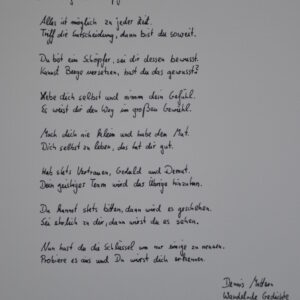 Alles ist möglich zu jeder Zeit.
Triff die Entscheidung, dann bist du soweit.
Du bist ein Schöpfer, sei dir dessen bewusst.
Kannst Berge versetzen, hast du das gewusst?
Liebe dich selbst und nimm dein Gefühl.
Es weist dir den Weg im großen Gewühl.
Mach dich nie klein und habe den Mut.
Dich selbst zu leben, das tut dir gut.
Hab stets Vertrauen, Geduld und Demut.
Dein geistiges Team wird das Übrige hinzutun.
Du kannst stets bitten, dann wird es geschehen.
Sei ehrlich zu dir, dann wirst du es sehen.
Nun hast du die Schlüssel um nur einige zu nennen.
Probiere es aus und Du wirst dich erkennen.
Dennis
Wandelnde Gedichte